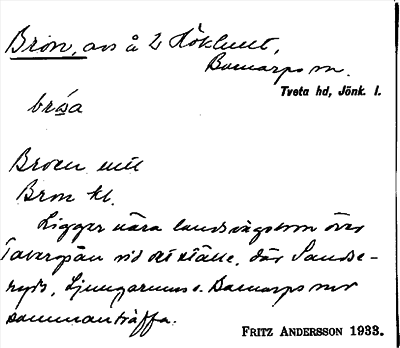 Bron, avs å 2 Höklult,
Barnarps sn.
Tveta hd, Jönk. l.
bróa
Broen
Bron kl.
Ligger nära landsvägsbron över
Tabergsån vid det ställe, där Sands-
ryds, Ljungarums o. Barnarps snr
sammanträffa.
FRITZ ANDERSSON 1933.